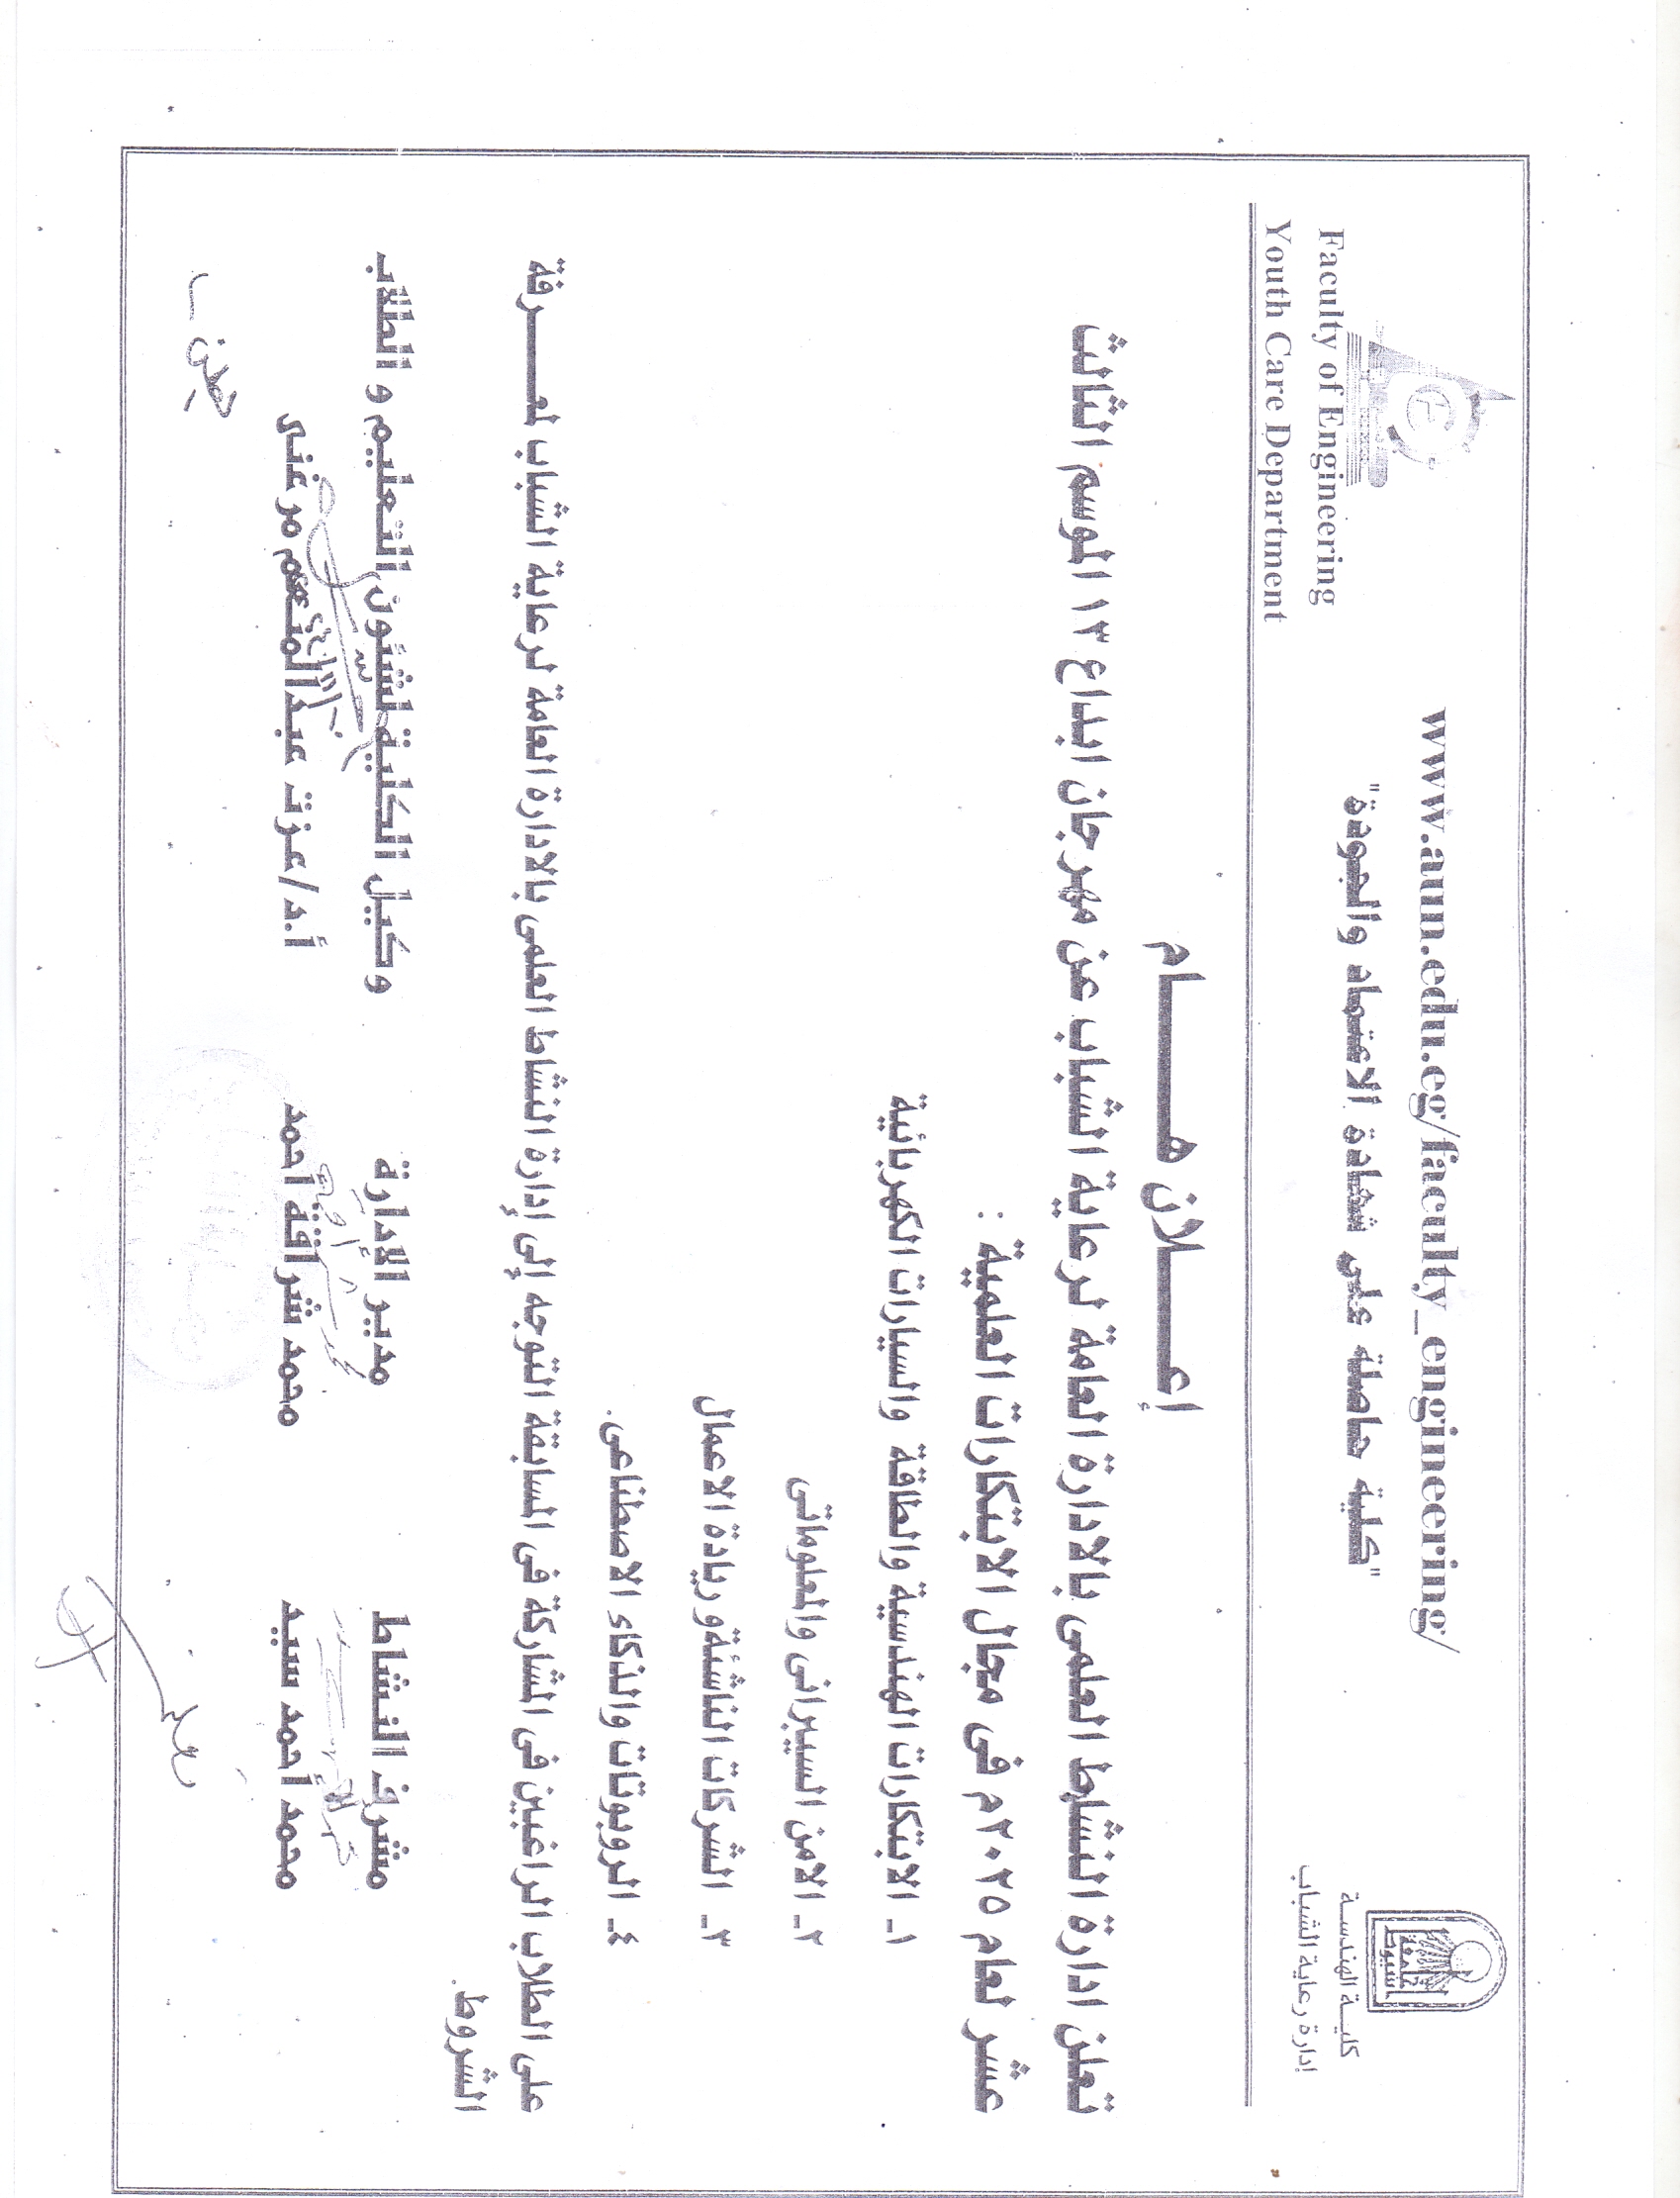 www.aun.edu.eg/faculty_engineering/
"كلية حاصلة على شهادة الاعتماد والجودة"
جامعة
اسيوط
كليــة الهندســة
إدارة رعاية الشباب
Faculty of Engineering
Youth Care Department
إعـــــلان هـــــــام
تعلن ادارة النشاط العلمى بالادارة العامة لرعاية الشباب عن مهرجان ابداع ١٣ الموسم الثالث
عشر لعام ٢٠٢٥م فى مجال الابتكارات العلمية :
١ـ الابتكارات الهندسية والطاقة والسيارات الكهربائية
٢ـ الامن السيبرانى والمعلوماتى
٣ـ الشركات الناشئة وريادة الاعمال
٤ـ الروبوتات والذكاء الاصطناعى.
على الطلاب الراغبين فى المشاركة فى المسابقة التوجه إلى إدارة النشاط العلمى بالادارة العامة لرعاية الشباب لمعـــــرفة
الشروط.
مشرف النشاط مدير الإدارة وكيل الكلية لشئون التعليم و الطلاب
محمد أحمد سيد محمد شراقة أحمد أ.د/عزت عبدالمنعم مرغنى
يعلن